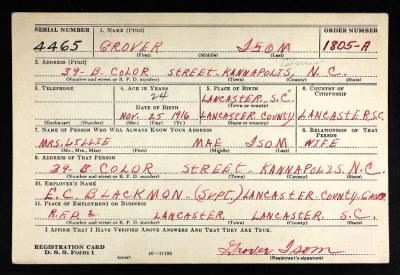 SERIAL NUMBER 1. NAME (Print) ORDER NUMBER
4465 GROVER ISOM 1805-A
(First) (Middle) (Last)
2. ADDRESS (Print)
39-B. COLOR STREET. KANNAPOLIS, N.C.
(Number and street or R. F. D. number) (Town) (County) (State)
3. TELEPHONE 4. AGE IN YEARS 5. PLACE OF BIRTH 6. COUNTRY OF CITIZENSHIP
24 LANCASTER, S.C.
DATE OF BIRTH (Town or county)
NOV. 25 1916 LANCASTER COUNTY LANCASTER S.C.
(Exchange) (Number) (Mo.) (Day) (Yr.) (State or country)
7. NAME OF PERSON WHO WILL ALWAYS KNOW YOUR ADDRESS 8. RELATIONSHIP OF THAT PERSON
MRS. LILLIE MAE ISOM WIFE
(Mr., Mrs., Miss) (First) (Middle) (Last)
9. ADDRESS OF THAT PERSON
39-B COLOR STREET-KANNAPOLIS, N.C.
(Number and street or R. F. D. number) (Town) (County) (State)
10. EMPLOYER'S NAME
E.C. BLACKMON-(SUPT.) LANCASTER COUNTY
11. PLACE OF EMPLOYMENT OR BUSINESS
R.F.D. LANCASTER, LANCASTER, S.C.
(Number and street or R. F. D. number) (Town) (County) (State)
I AFFIRM THAT I HAVE VERIFIED ABOVE ANSWERS AND THAT THEY ARE TRUE.
REGISTRATION CARD
D. S. S. Form 1 (over) 16—17105 Grover Isom
(Registrant's signature)